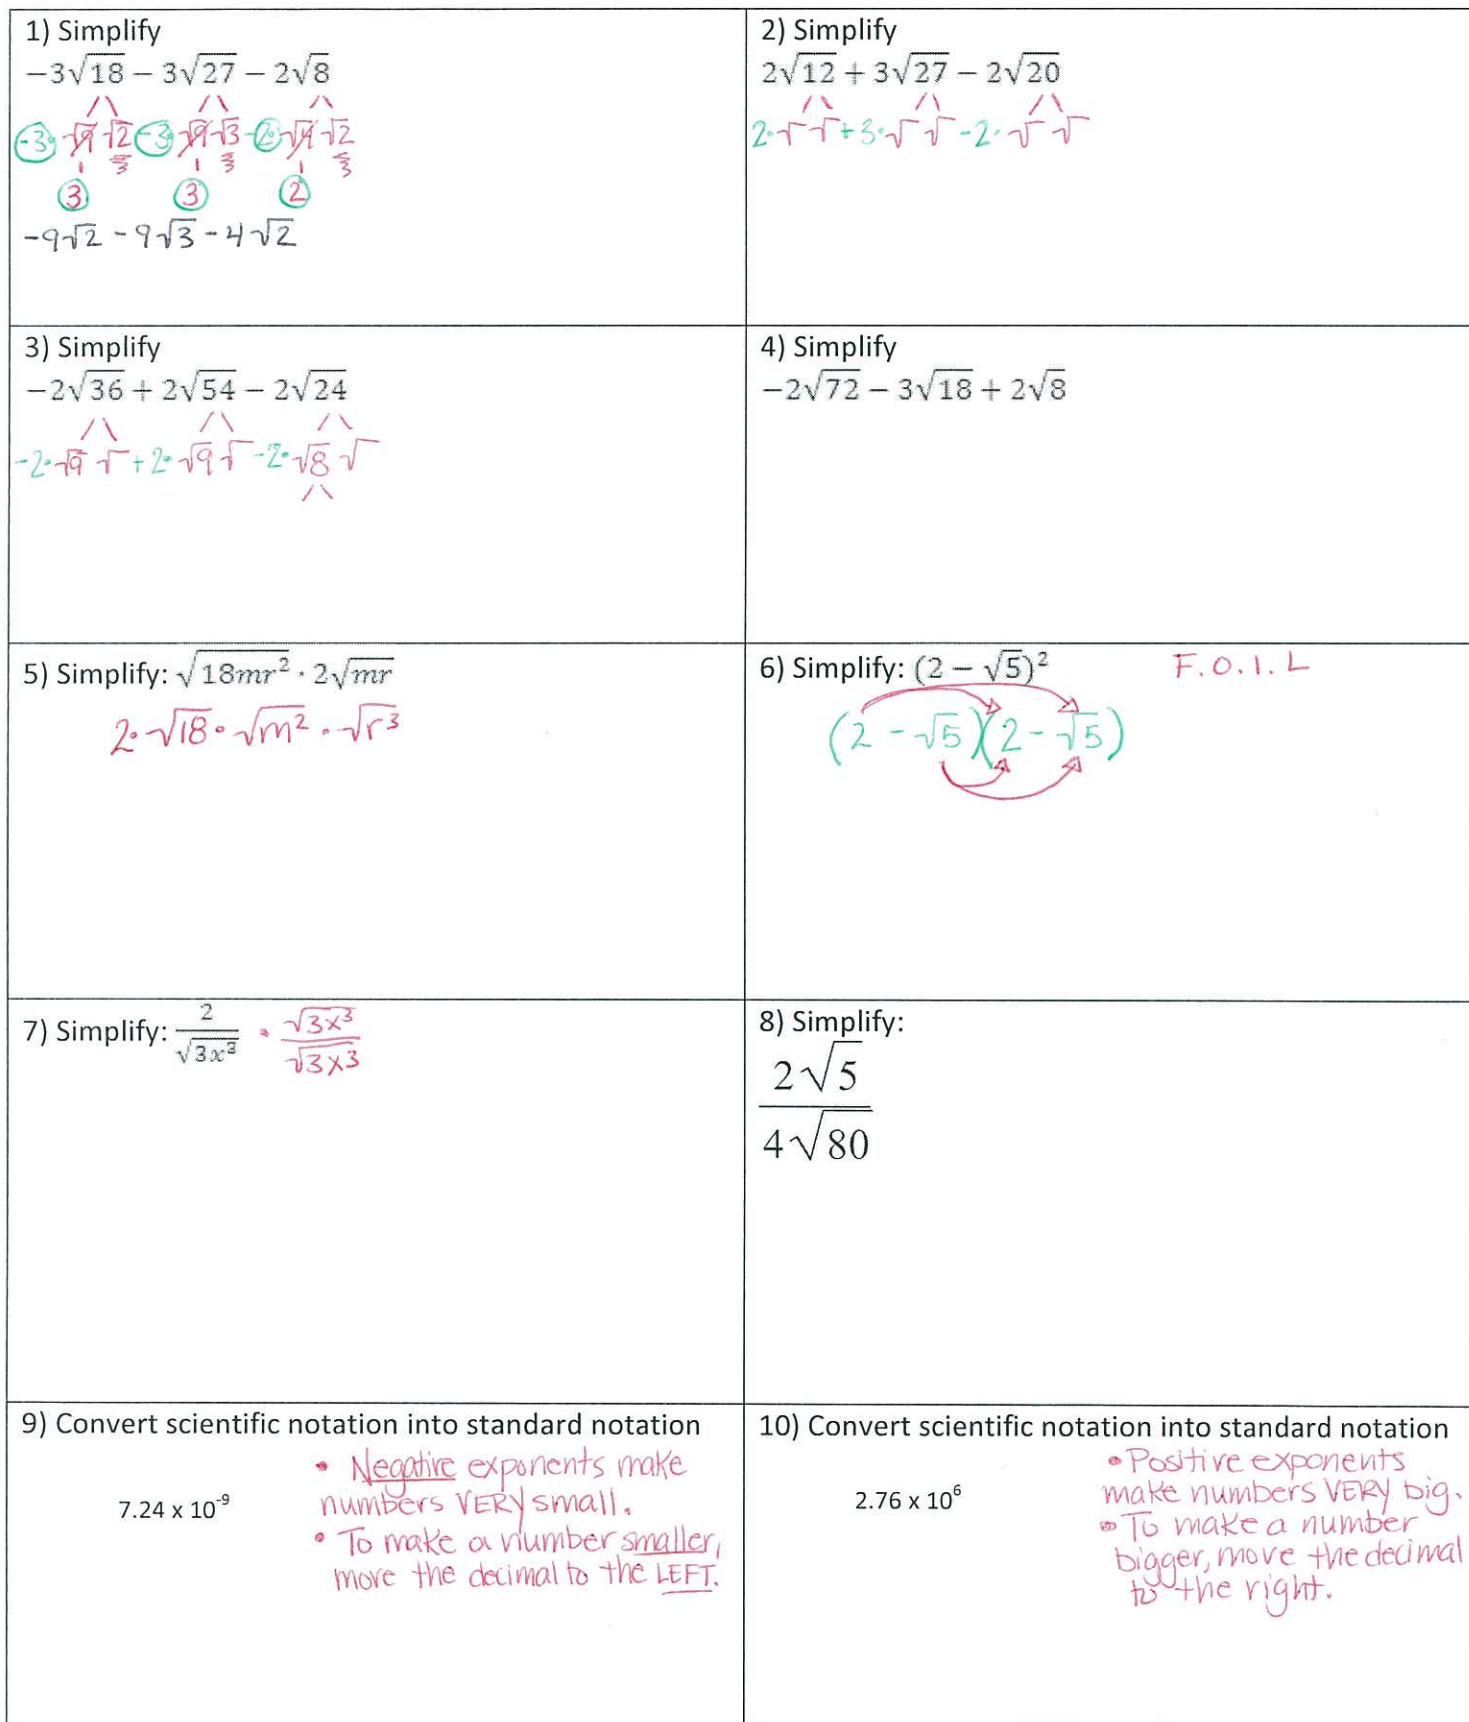 1) Simplify
−3√18 − 3√27 − 2√8
-3· √9 √2 -3· √9 √3 -2· √4 √2
3 3 2
-9√2 - 9√3 - 4√2
2) Simplify
2√12 + 3√27 − 2√20
2·√ √ + 3·√ √ - 2·√ √
3) Simplify
−2√36 + 2√54 − 2√24
-2·√9 √ + 2·√9 √ - 2·√8 √
4) Simplify
−2√72 − 3√18 + 2√8
5) Simplify: √18mr² · 2√mr
2·√18·√m² · √r³
6) Simplify: (2 − √5)² F.O.I.L
(2 - √5)(2 - √5)
7) Simplify: 2/√3x³ · √3x³/√3x³
8) Simplify:
2√5
4√80
9) Convert scientific notation into standard notation
7.24 x 10⁻⁹
• Negative exponents make
numbers VERY small.
• To make a number smaller,
move the decimal to the LEFT.
10) Convert scientific notation into standard notation
2.76 x 10⁶
• Positive exponents
make numbers VERY big.
• To make a number
bigger, move the decimal
to the right.